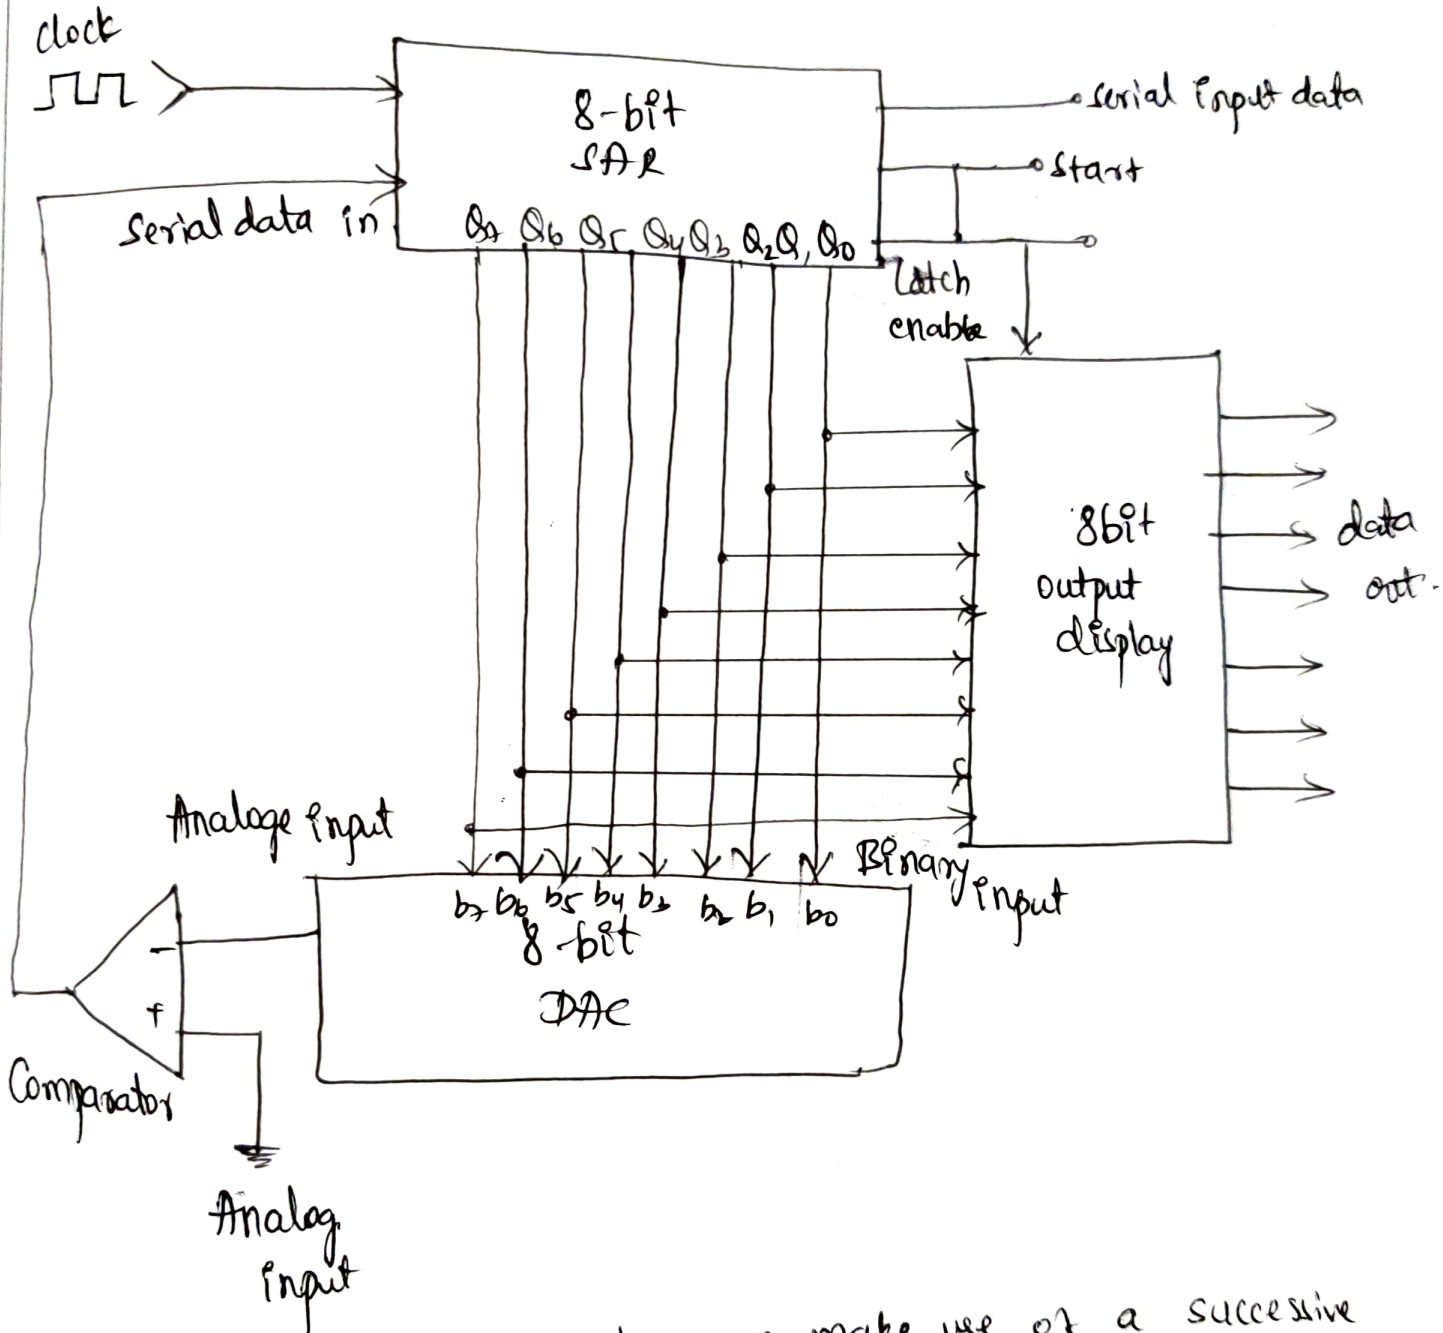 clock
8-bit
SAR
serial input data
start
serial data in
Q7 Q6 Q5 Q4 Q3 Q2 Q1 Q0
Latch
enable
8bit
output
display
data
out.
Analoge input
Binary
input
b7 b6 b5 b4 b3 b2 b1 b0
8-bit
DAC
-
+
Comparator
Analog
input
make use of a successive